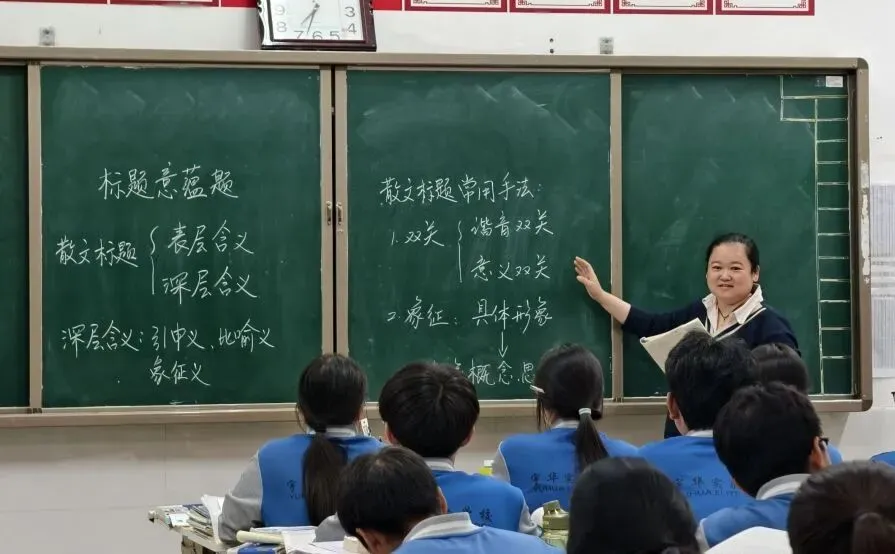 标题意蕴题
散文标题
表层含义
深层含义
深层含义：引申义、比喻义
象征义
散文标题常用手法：
1.双关
谐音双关
意义双关
2.象征：具体形象
概念思
9
3
8
4
7
6
5